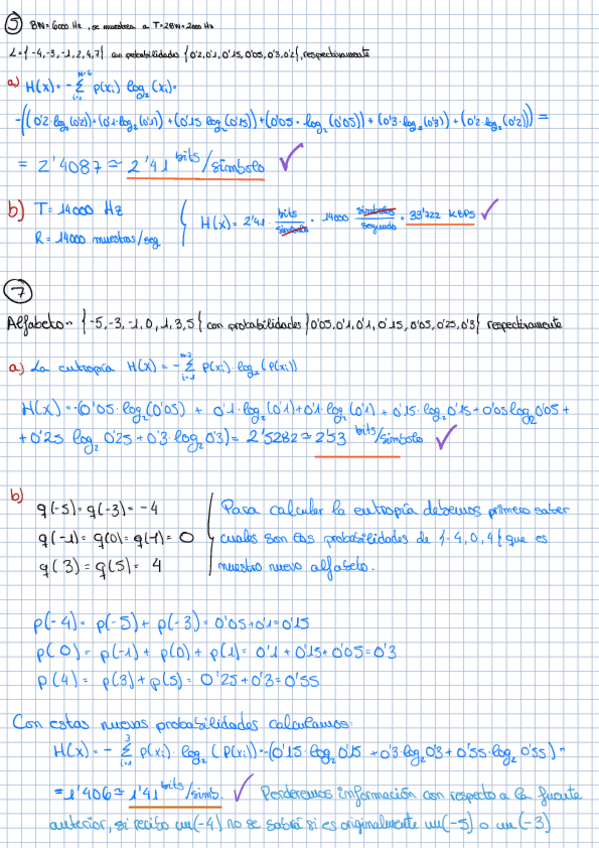 5 BW=6000 Hz, se muestrea a T=2BW+2000 Hz
L={-4,-3,-1,2,4,7} con probabilidades {0'2,0'1,0'15,0'05,0'3,0'2}, respectivamente
a) H(x)=-∑ᵢ₌₁ᴺ⁼⁶ p(xi) log₂(xi)=
-((0'2·log₂(0'2))+(0'1·log₂(0'1))+(0'15 log₂(0'15))+(0'05·log₂(0'05))+(0'3·log₂(0'3))+(0'2·log₂(0'2))) =
= 2'4087 ≃ 2'41 bits/símbolo ✓
b) T=14000 Hz
R=14000 muestras/seg
H(x)=2'41 bits/símbolo · 14000 símbolos/segundo = 33'722 KBPS ✓
7
Alfabeto= {-5,-3,-1,0,1,3,5} con probabilidades {0'05,0'1,0'1,0'15,0'05,0'25,0'3} respectivamente
a) La entropía H(x)=-∑ᵢ₌₁ᴺ⁼⁷ p(xi)·log₂(p(xi))
H(x)=-(0'05·log₂(0'05) + 0'1·log₂(0'1)+0'1·log₂(0'1) + 0'15·log₂0'15+0'05log₂0'05+
+0'25 log₂ 0'25+0'3·log₂0'3)= 2'5282≃2'53 bits/símbolo ✓
b)
q(-5)=q(-3)=-4
q(-1)=q(0)=q(-1)=0
q(3)=q(5)= 4
Para calcular la entropía debemos primero saber
cuales son las probabilidades de {-4,0,4} que es
nuestro nuevo alfabeto.
p(-4)= p(-5)+p(-3)=0'05+0'1=0'15
p(0)= p(-1)+p(0)+p(1)=0'1+0'15+0'05=0'3
p(4)= p(3)+p(5)= 0'25+0'3=0'55
Con estas nuevas probabilidades calculamos:
H(x)=-∑ᵢ₌₁³ p(xi)·log₂(p(xi))=-(0'15·log₂0'15 +0'3·log₂0'3+0'55·log₂0'55)=
=1'406≃1'41 bits/simb. ✓ Perderemos información con respecto a la fuente
anterior, si recibo un(-4) no se sabrá si es originalmente un(-5) o un(-3)